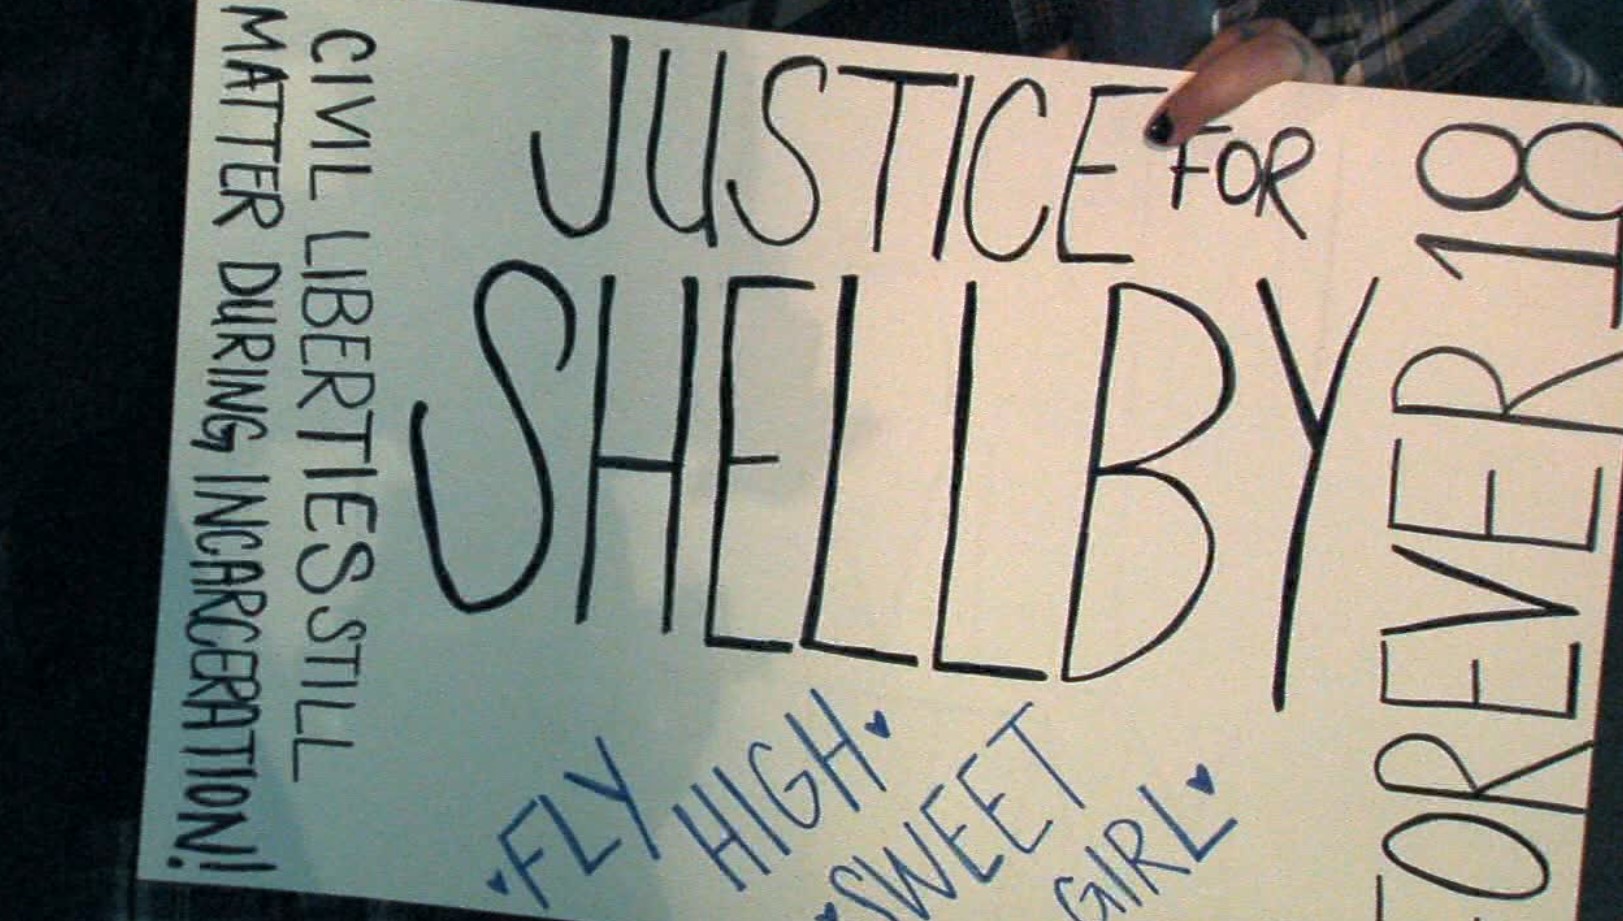 JUSTICE FOR
SHELLBY
CIVIL LIBERTIES STILL
MATTER DURING INCARCERATION!
FOREVER 18
FLY
HIGH
SWEET
GIRL